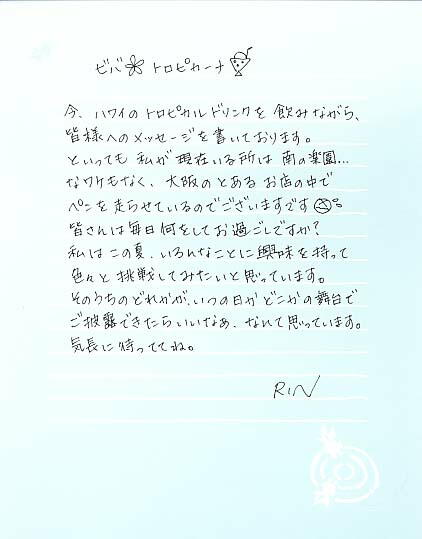 ビバ トロピカーナ
今、ハワイのトロピカルドリンクを飲みながら、
皆様へのメッセージを書いております。
といっても 私が現在いる所は 南の楽園…
なワケもなく、大阪のとあるお店の中で
ペンを走らせているのでございますです
皆さんは毎日何をしてお過ごしですか?
私はこの夏、いろんなことに興味を持って
色々と挑戦してみたいと思っています。
そのうちのどれかが、いつの日かどこかの舞台で
ご披露できたらいいなあ、なんて思っています。
気長に待っててね。
RIN